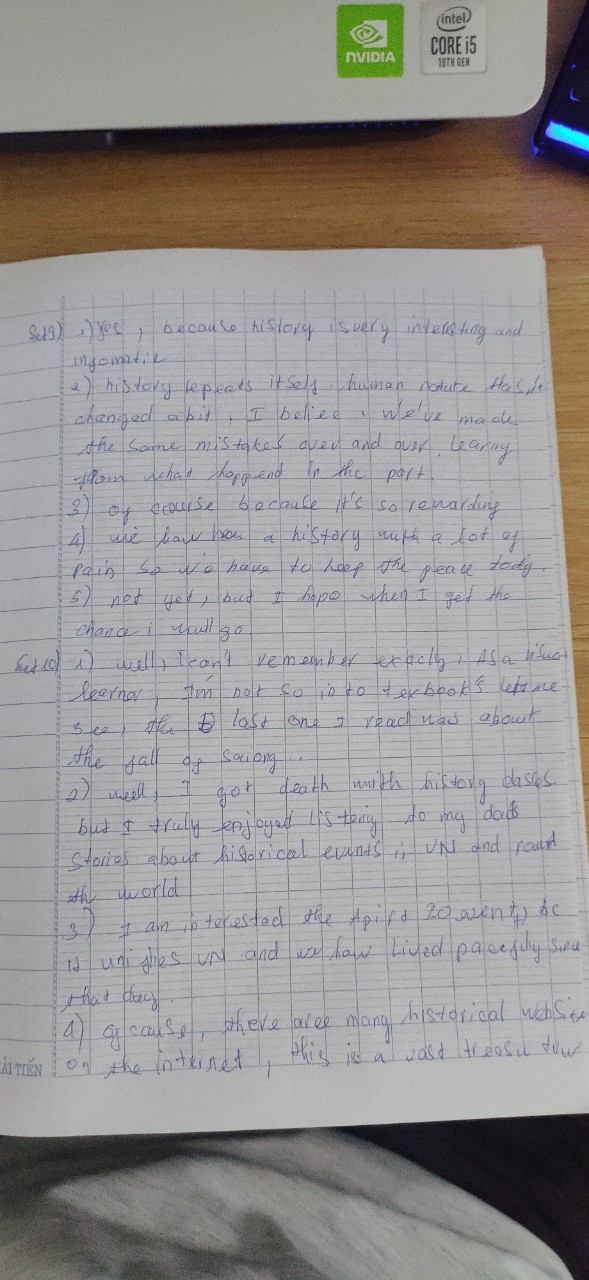 NVIDIA
intel
CORE i5
10TH GEN
Set9) 1) Yes , because history is very interesting and
infomatic
2) history repeats itself. human nature
changed a bit, I beliee . We've made
the same mistakes over and over. learing
from what happend in the part.
3) of ccourse because it's so rewarding
4) we have a history with a lot of
pain so we have to keep the peace tody.
5) not yet, but I hope when I get the
chance i will go
Set 10) 1) well, I can't remember exacly, As a
learner, I'm not so in to texbook's let me
see, the last one I read was about
the fall of Saiong..
2) well, I got death with history classes
but I truly enjoyed listenig to my dads
Stories about historical events in VN and
the world
3) I am interested the Apirt 20
is unifies VN and we have lived pacefully since
that day.
4) of cause, there aree many historical website
on the internet, this is a vast treasu
ẢI TIẾN